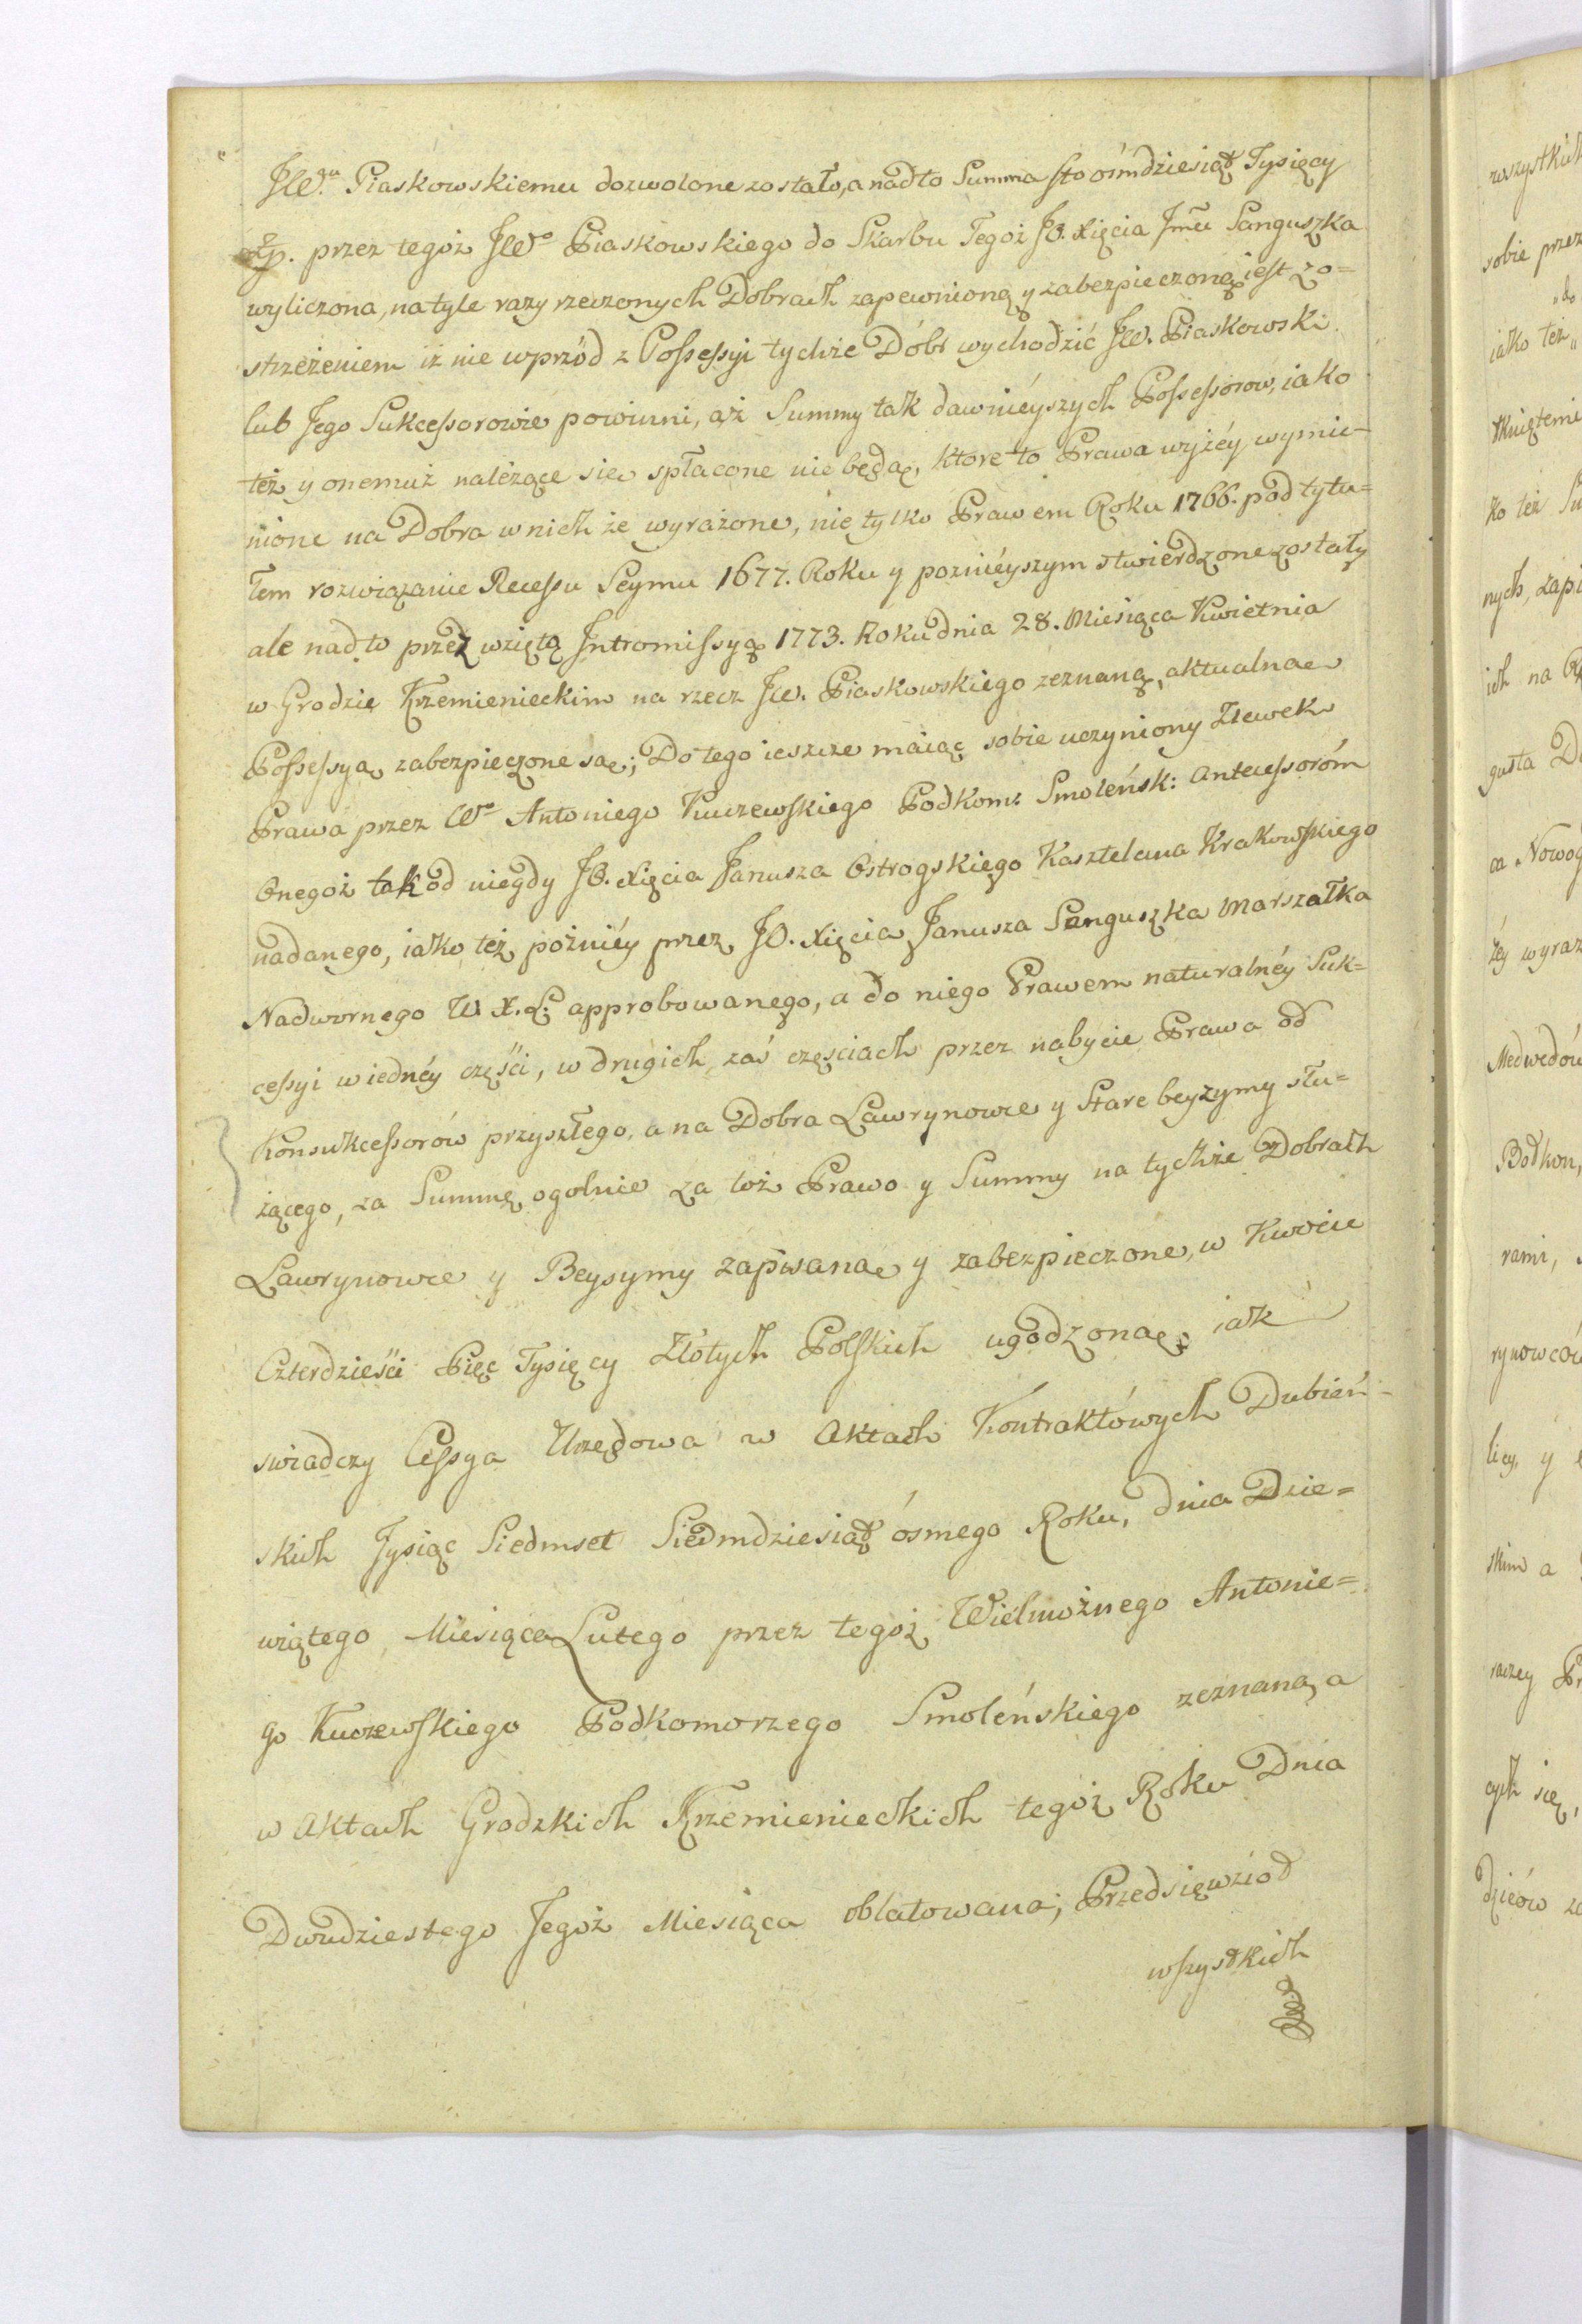 JW.mu Piaskowskiemu dozwolone zostało, a nadto Summa sto ośmdziesiąt Tysięcy
Złp. przez tegoż JWo Piaskowskiego do Skarbu Tegoż JO. Xięcia Jmći Sanguszka
wyliczona, na tyle razy rzeczonych Dobrach zapewnioną y zabezpieczoną iest zo=
strzeżeniem iż nie wprzód z Possessyi tychże Dóbr wychodzić JW. Piaskowski
lub Jego Sukcessorowie powinni, aż Summy tak dawniéyszych Possessorow, iako
też y onemuż należące się spłacone nie będą, ktore to Prawa wyżéy wymie-
nione na Dobra w nich że wyrażone, nie tylko Prawem Roku 1766. pod tytu=
łem rozwiązanie Recessu Seymu 1677. Roku y poznieyszym stwierdzone zostały
ale nadto przez wziętą Intromissyą 1773. Roku dnia 28. Miesiąca Kwietnia
w Grodzie Krzemienieckim na rzecz JW. Piaskowskiego zeznaną, aktualną
Possessyą zabezpieczone są; Do tego ieszcze maiąc sobie uczyniony Zlewek
Prawa przez Wo Antoniego Kuczewskiego Podkom: Smoleńsk: Antecessoróm
Onegoż tak od niegdy JO. Xięcia Janusza Ostrogskiego Kasztelana Krakowskiego
nadanego, iako też pożniéy przez JO. Xięcia Janusza Sanguszka Marszałka
Nadwornego W. X. L. approbowanego, a do niego Prawem naturalnéy Suk=
cessyi w iednéy części, w drugich zaś częsciach przez nabycie Prawa od
Konsukcessorów przyszłego, a na Dobra Lawrynowce y Stare beyzymy słu=
żącego, za Summę ogolnie za toż Prawo y Summy na tychże Dobrach
Lawrynowce y Beysymy zapisaną y zabezpieczone, w Kwocie
Czterdzieści Pięc Tysięcy Złótych Polskich ugodzoną; iak
swiadczy Cessya Urzędowa w Aktach Kontraktówych Dubień-
skich Tysiąc Siedmset Siedmdziesiąt ósmego Roku, dnia Dzie=
wiątego Miesiąca Lutego przez tegoż Wielmożnego Antonie=
go Kuczewskiego Podkomorzego Smoleńskiego zeznana, a
w Aktach Grodzkich Krzemienieckich tegoż Roku Dnia
Dwudziestego Tegoż Miesiąca oblatowana; Przedsięwziod
wszystkich